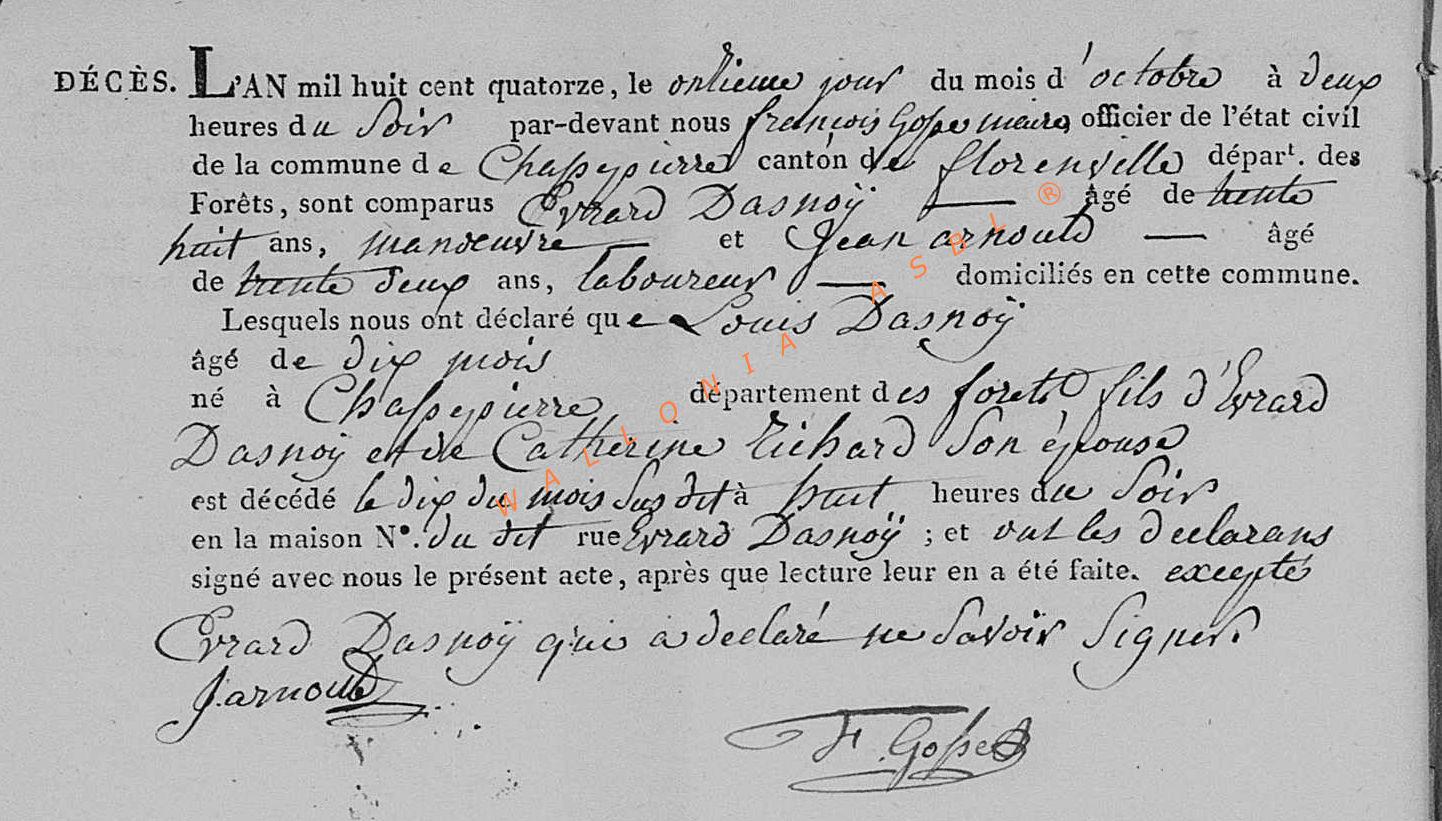 DÉCÈS. L'AN mil huit cent quatorze, le onzieme jour du mois d'octobre à deux
heures du Soir par-devant nous françois Gosse maire officier de l'état civil
de la commune de Chassepierre canton de florenville départ. des
Forêts, sont comparus Evrard Dasnoÿ — âgé de trente
huit ans, manoeuvre — et Jean arnould — âgé
de trente deux ans, laboureur — domiciliés en cette commune.
Lesquels nous ont déclaré que Louis Dasnoÿ
âgé de dix mois
né à Chassepierre département des forets fils d'Evrard
Dasnoÿ et de Catherine Richard Son épouse
est décédé le dix du mois Sus dit à huit heures du Soir
en la maison N°. du dit rue Evrard Dasnoÿ ; et ont les declarans
signé avec nous le présent acte, après que lecture leur en a été faite. excepté
Evrard Dasnoÿ qui a declaré ne Savoir Signer.
J. arnould
F. Gosse
WALLONIA ASBL ®